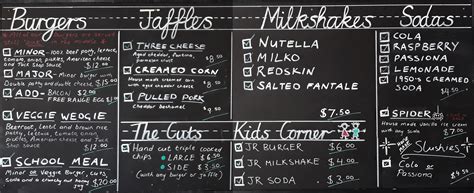 Burgers
MINOR - 100% beef patty, lettuce
tomato, onion, pickles, American cheese
and Two Chicks Sauce
MAJOR - Minor Burger with
Double patty and double cheese
ADD - BACON $2.00
FREE RANGE EGG
VEGGIE WEDGIE
Beetroot, lentil and brown rice
patty, lettuce, tomato, onion,
pickles, American cheese
and Two Chicks Sauce
SCHOOL MEAL
Minor or Veggie Burger, Cuts
$20.00
Jaffles
THREE CHEESE
$8.50
CREAMED CORN
$9.50
PULLED PORK
Cheddar bechamel
The Cuts
Hand cut triple cooked
chips
LARGE $6.50
SIDE $3.50
(with any burger or jaffle)
Milkshakes
NUTELLA
MILKO
REDSKIN
SALTED PANTALE
$7.50
Kids Corner
JR BURGER $6.00
JR MILKSHAKE $4.00
JR SODA $3.00
Sodas
COLA
RASPBERRY
PASSIONA
LEMONADE
1950's CREAMED
SODA $4.50
SPIDER
House made vanilla ice
cream with any Soda
Slushies
Cola or
Passiona